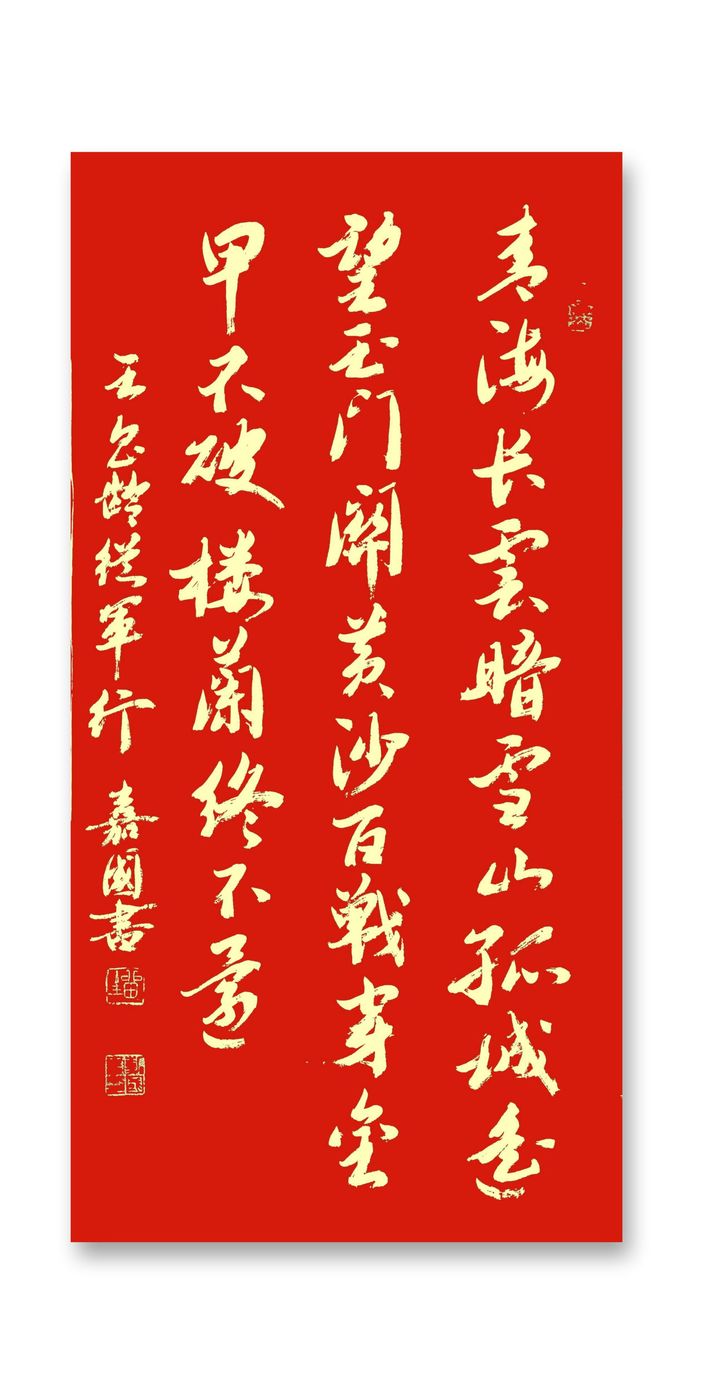 青海长雲暗雪山孤城遥
望玉门關黄沙百戦穿金
甲不破楼蘭终不還
王昌龄従軍行 嘉國書